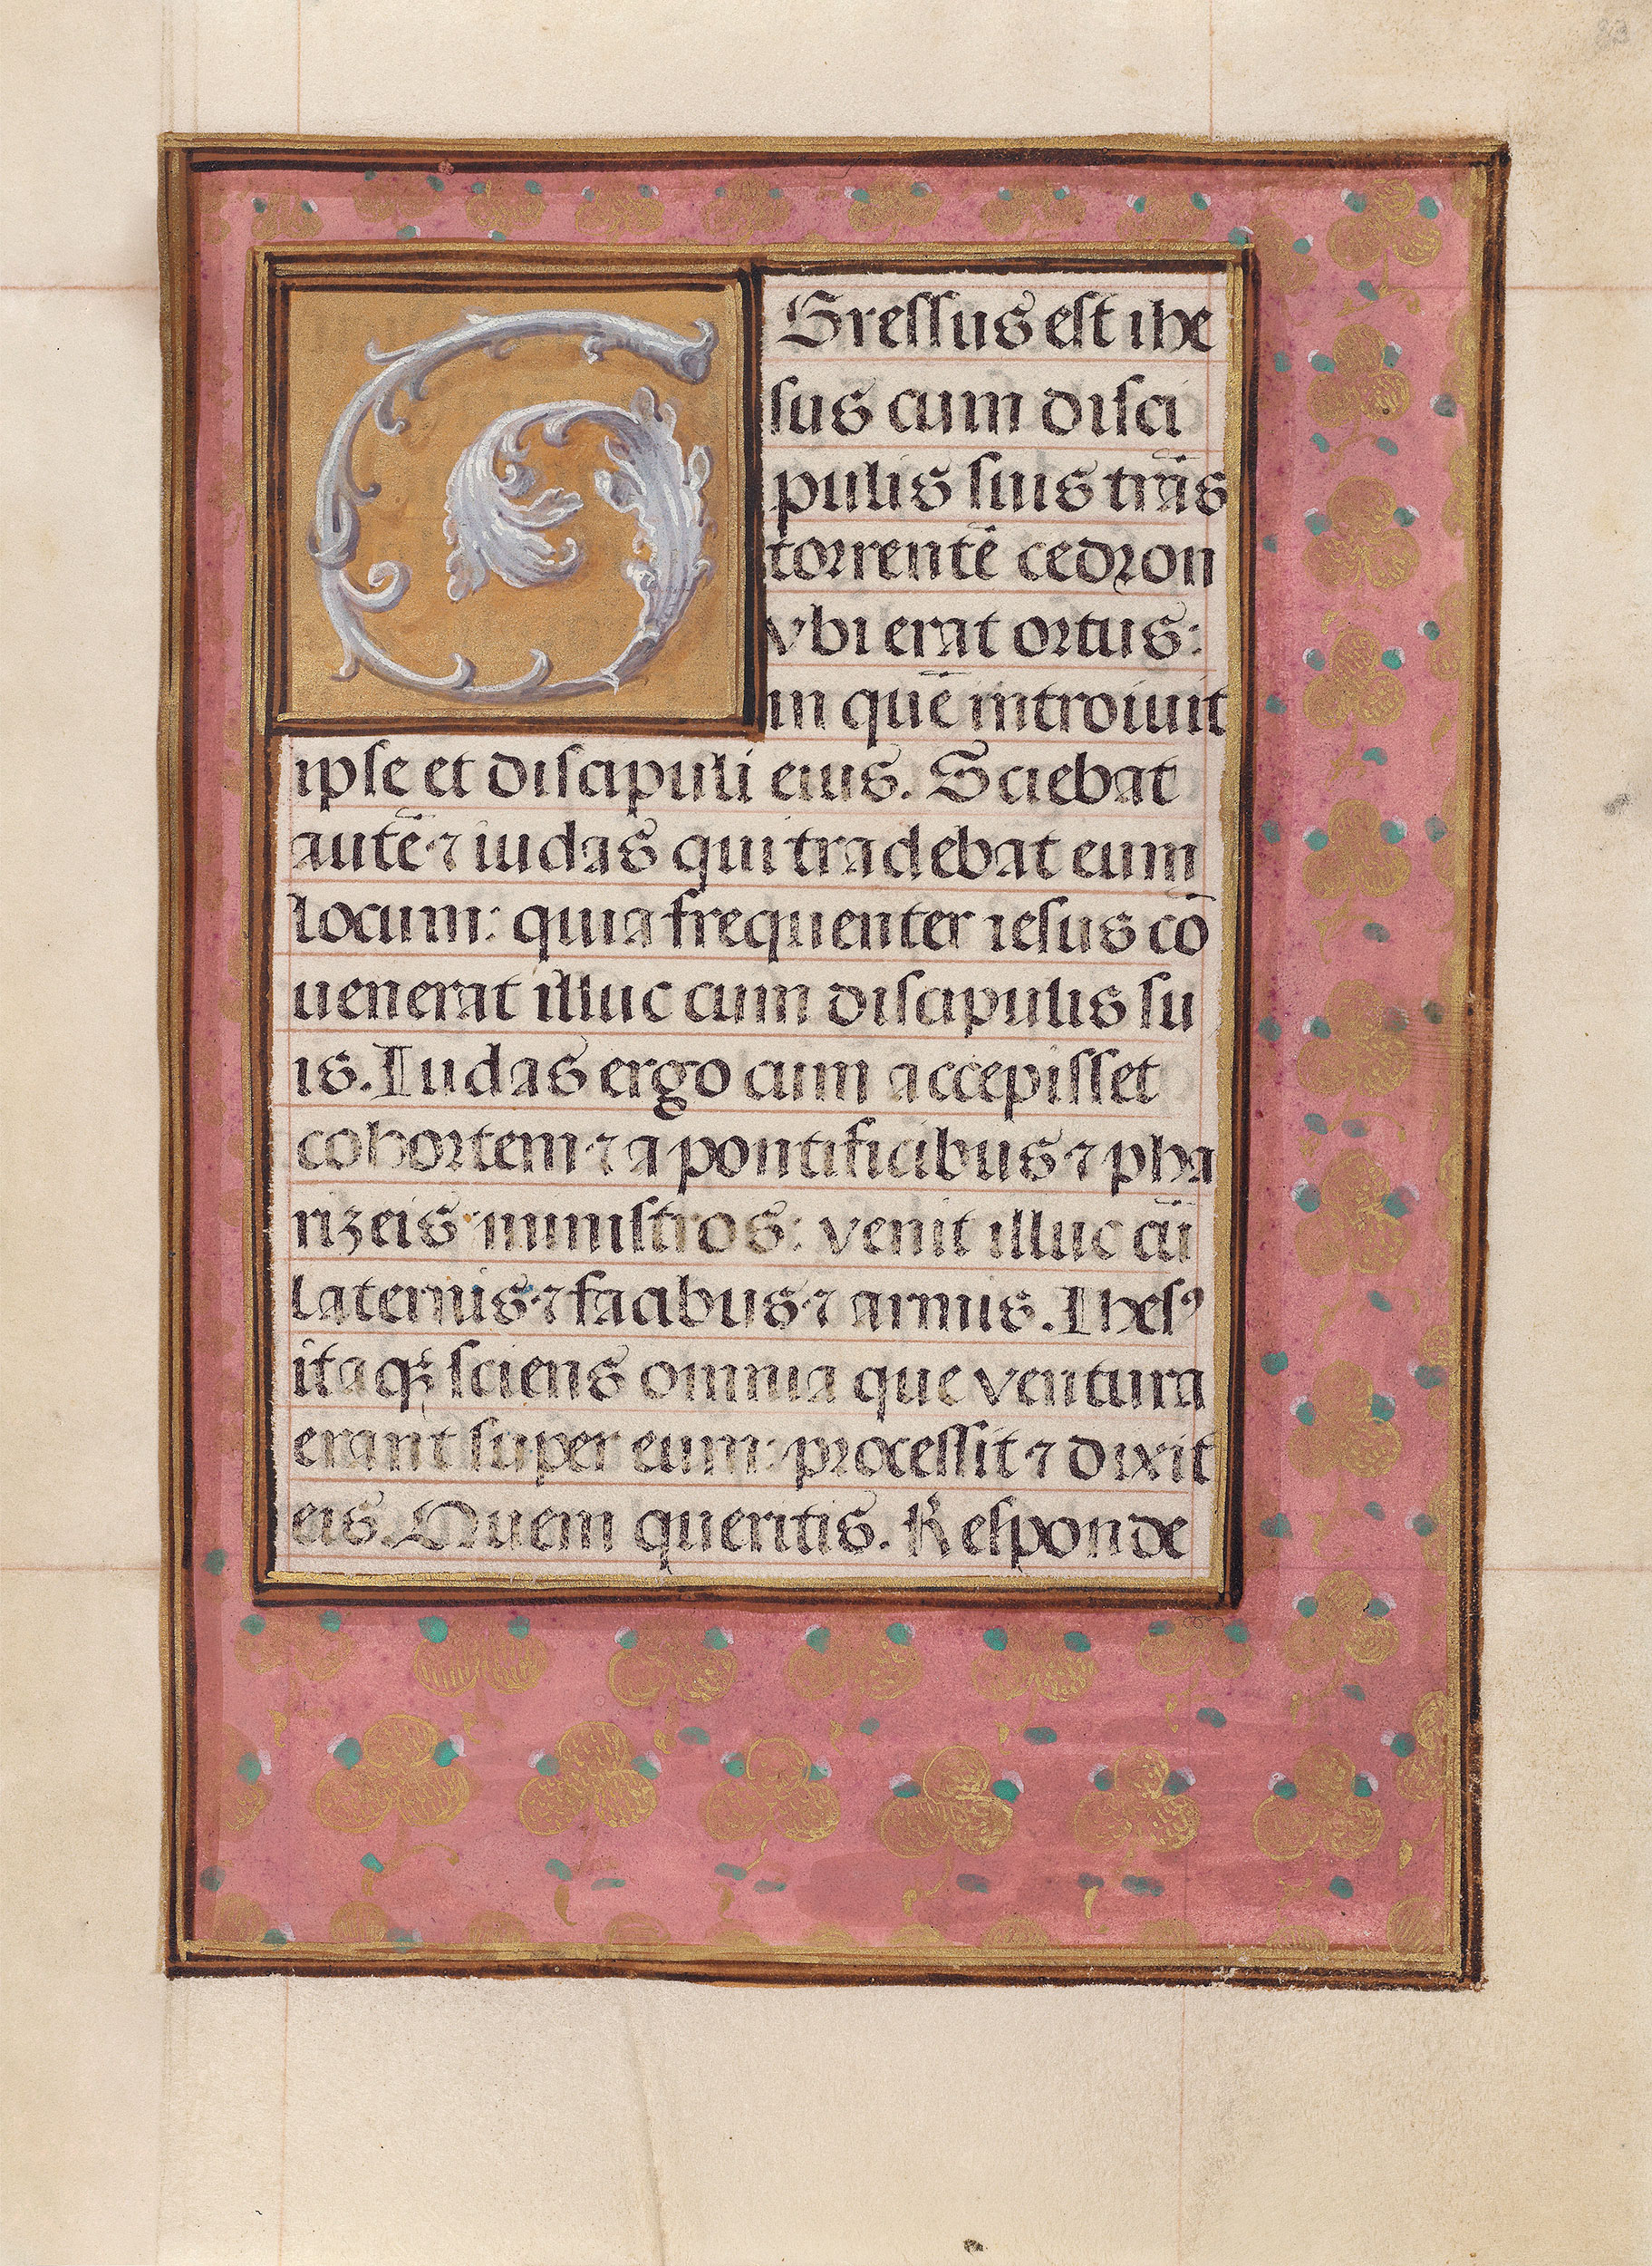 EGressus est ihe
sus cum disci
pulis suis trãs
torrentē cedron
vbi erat ortus:
in quē introiuit
ipse et discipuli eius. Sciebat
autē ⁊ iudas qui tradebat eum
locum: quia frequenter iesus cō
uenerat illuc cum discipulis su
is. Iudas ergo cum accepisset
cohortem ⁊ a pontificibus ⁊ pha
rizeis ministros: venit illuc cū
laternis ⁊ facibus ⁊ armis. Ihesꝰ
itaqꝫ sciens omnia que ventura
erant super eum: processit ⁊ dixit
eis. Quem queritis. Responde